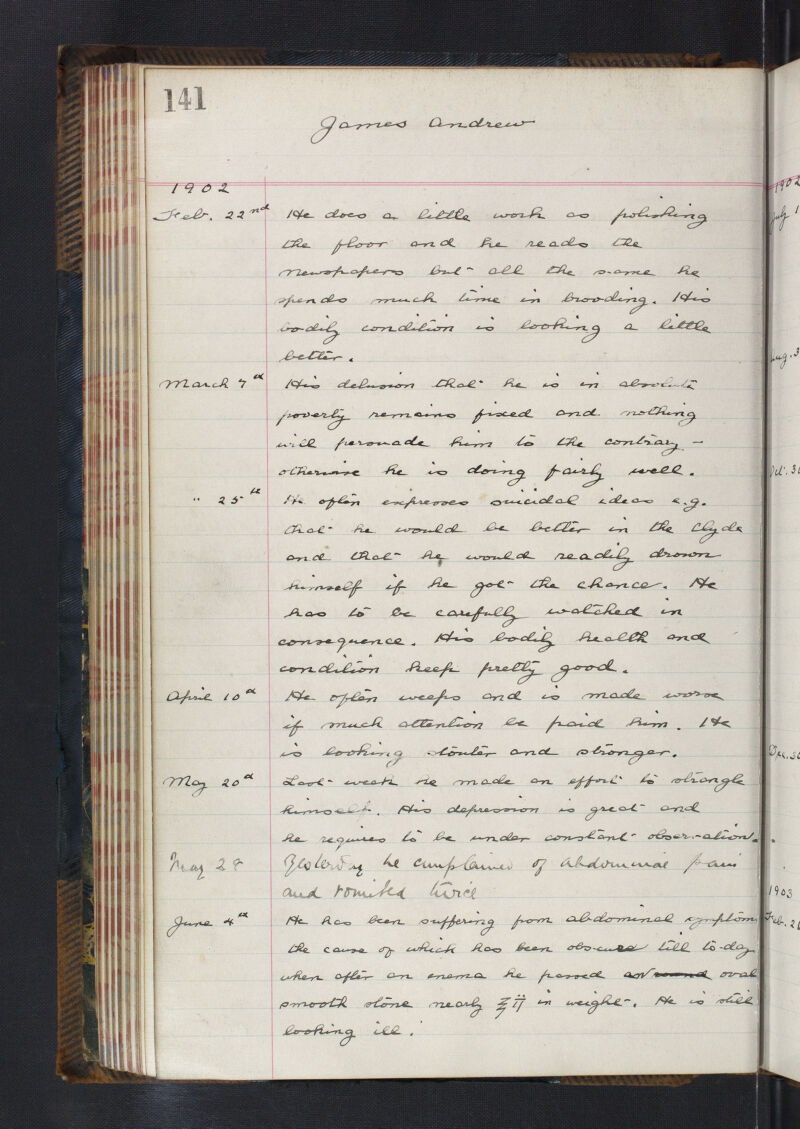 141
James Andrew
1902
Feb. 22nd He does a little work as polishing
the floor and he reads the
newspapers but all the same he
spends much time in brooding. His
bodily condition is looking a little
better.
March 7th His delusion that he is in absolute
poverty remains fixed and nothing
will persuade him to the contrary –
otherwise he is doing fairly well.
" 25th He often expresses suicidal ideas e.g.
that he would be better in the Clyde
and that he would readily drown
himself if he got the chance. He
has to be carefully watched in
consequence. His bodily health and
condition keep pretty good.
April 10th He often weeps and is made worse
if much attention be paid him. He
is looking stouter and stronger.
May 20th Last week he made an effort to strangle
himself. His depression is great and
he requires to be under constant observation.
May 28 Yesterday he complained of abdominal pain
and vomited twice
June 4th He has been suffering from abdominal symptoms
the cause of which has been obscured till to-day
when after an enema he passed an round oval
smooth stone nearly ℥ ii in weight. He is still
looking ill.
1902
July 1
Aug. 3
Oct. 30
Dec. 30
1903
Feb. 2